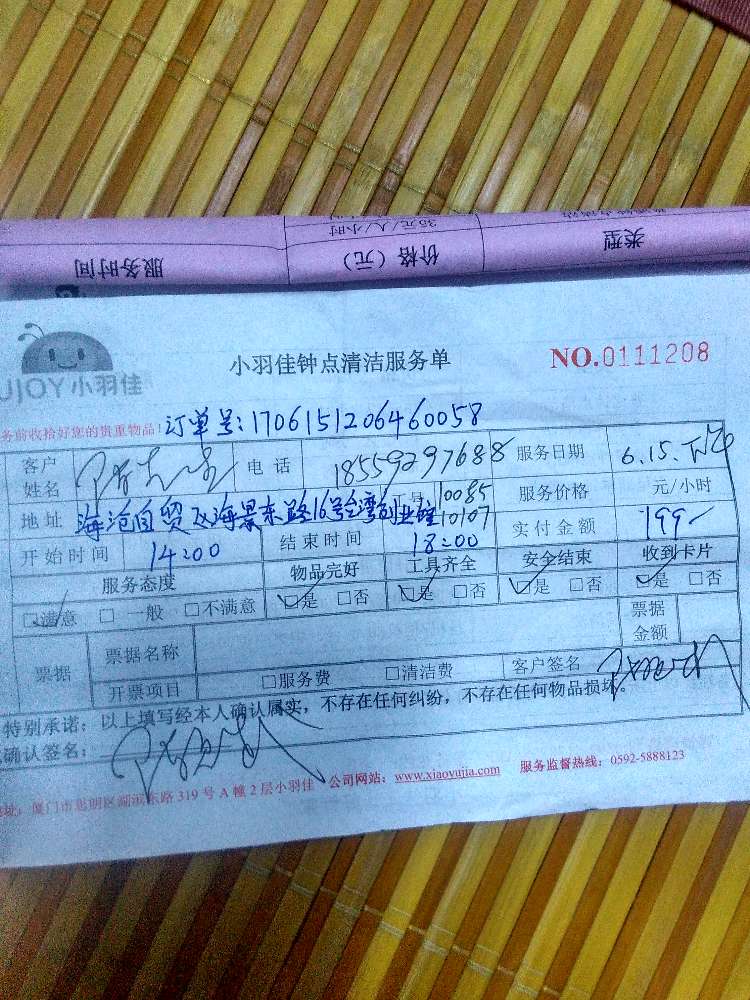 服务时间 价格（元） 类型
35元/人/小时
小羽佳钟点清洁服务单 NO.0111208
UJOY 小羽佳
务前收拾好您的贵重物品! 订单号:1706151206460058
客户姓名 电话 18559297688 服务日期 6.15.
地址 海沧自贸区海景东路16号台湾创业 10085 10107 服务价格 元/小时
实付金额 199
开始时间 14:00 结束时间 18:00
服务态度 物品完好 工具齐全 安全结束 收到卡片
□满意 □一般 □不满意 □是 □否 □是 □否 □是 □否 □是 □否
票据 票据名称 票据金额
开票项目 □服务费 □清洁费 客户签名
特别承诺：以上填写经本人确认属实，不存在任何纠纷，不存在任何物品损坏。
确认签名：
址：厦门市思明区湖滨东路319号A幢2层小羽佳 公司网站：www.xiaoyujia.com 服务监督热线：0592-5888123